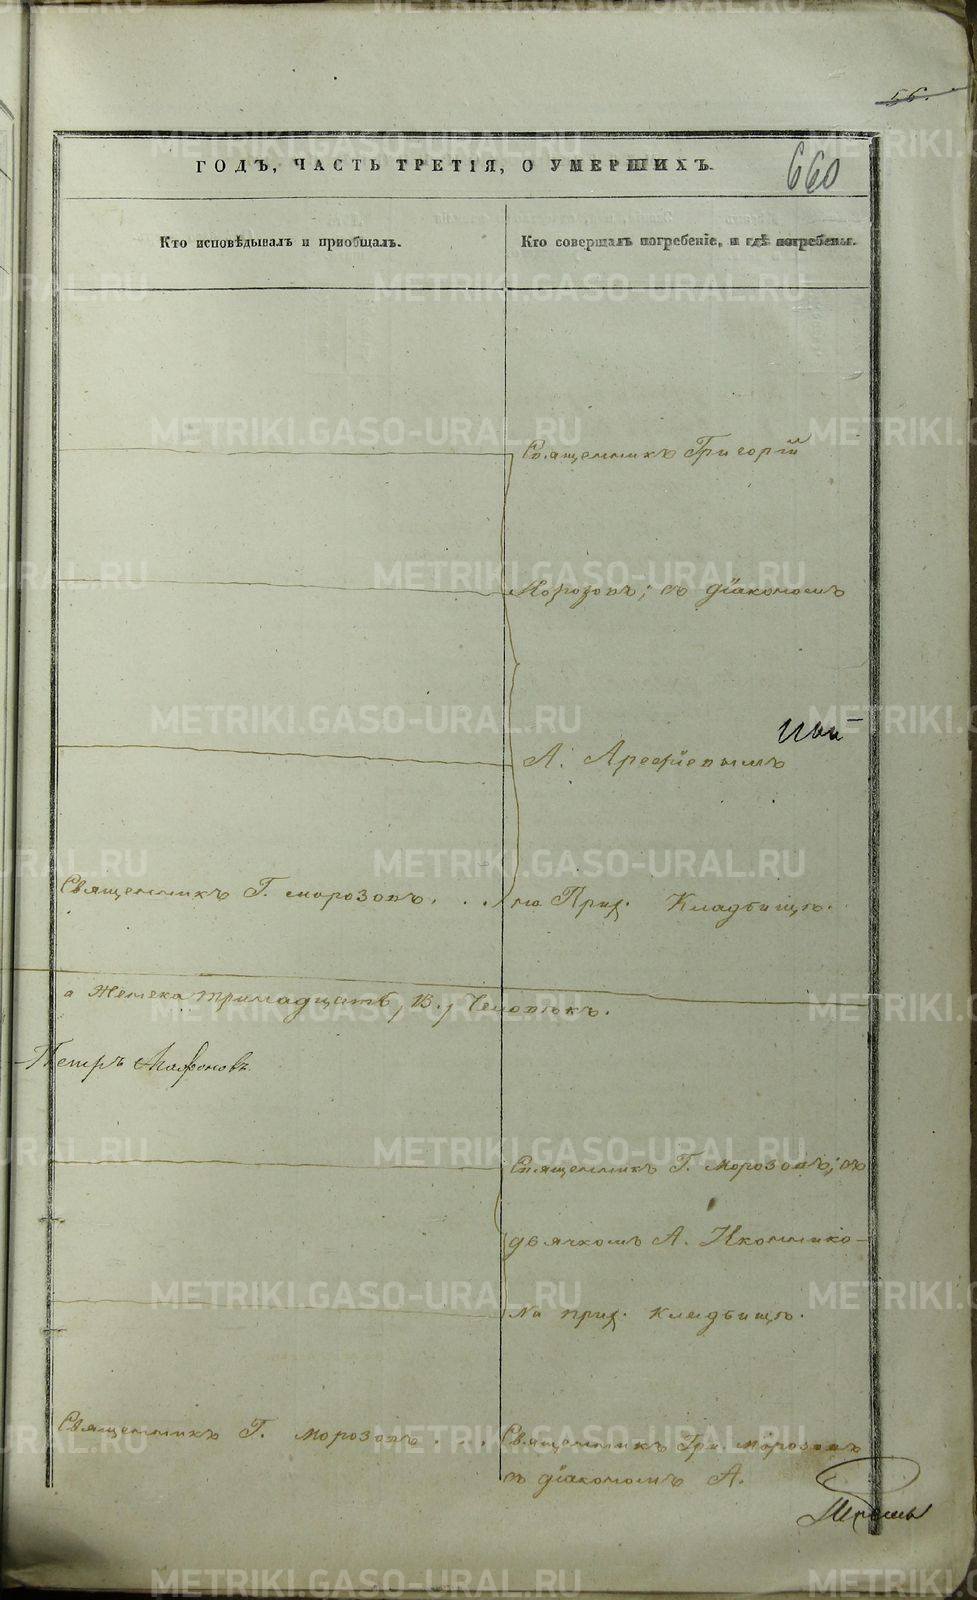 56.
ГОДЪ, ЧАСТЬ ТРЕТІЯ, О УМЕРШИХЪ.
660
Кто исповѣдывалъ и пріобщалъ.
Кто совершалъ погребеніе, и гдѣ погребены.
Священникъ Григорій
Морозовъ; съ діакономъ
А. Арефіевымъ
Священникъ Г. Морозовъ. . .
на Прих. Кладбищѣ.
а Женска тринадцать, 13, Человѣкъ.
Петръ
Священникъ Г. Морозовъ; съ
дьячкомъ А. Иконнико-
На прих. кладбищѣ.
Священникъ Г. Морозовъ . . .
Священникъ Гри. Морозовъ
съ діакономъ А.
METRIKI.GASO-URAL.RU